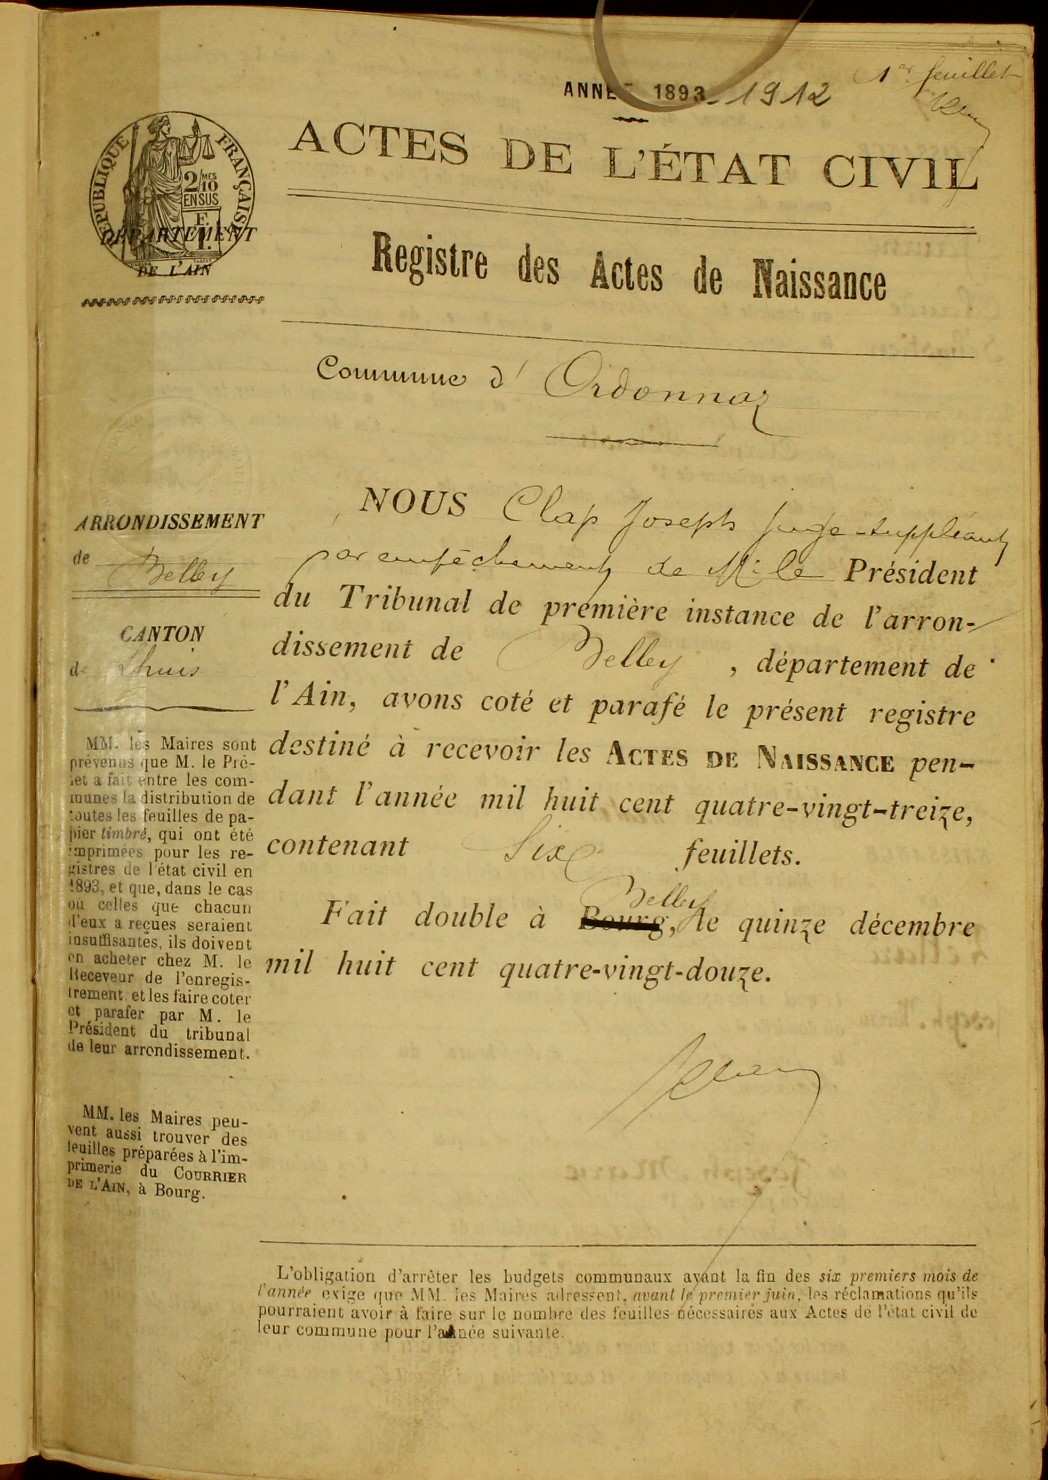 ANNÉE 1893 - 1912
1er feuillet
ACTES DE L'ÉTAT CIVIL
RÉPUBLIQUE FRANÇAISE
2/10 MES
EN SUS
DÉPARTEMENT
DE L'AIN
Registre des Actes de Naissance
Commune d' Ordonnaz
ARRONDISSEMENT
de Belley
CANTON
de Lhuis
MM. les Maires sont
prévenus que M. le Pré-
fet a fait entre les com-
munes la distribution de
toutes les feuilles de pa-
pier timbré, qui ont été
imprimées pour les re-
gistres de l'état civil en
1893, et que, dans le cas
où celles que chacun
d'eux a reçues seraient
insuffisantes, ils doivent
en acheter chez M. le
Receveur de l'enregis-
trement et les faire coter
et parafer par M. le
Président du tribunal
de leur arrondissement.
MM. les Maires peu-
vent aussi trouver des
feuilles préparées à l'im-
primerie du COURRIER
DE L'AIN, à Bourg.
NOUS Clap Joseph Juge-suppléant
par empêchement de M. le Président
du Tribunal de première instance de l'arron-
dissement de Belley, département de
l'Ain, avons coté et parafé le présent registre
destiné à recevoir les ACTES DE NAISSANCE pen-
dant l'année mil huit cent quatre-vingt-treize,
contenant Six feuillets.
Belley
Fait double à Bourg, le quinze décembre
mil huit cent quatre-vingt-douze.
L'obligation d'arrêter les budgets communaux avant la fin des six premiers mois de
l'année exige que MM. les Maires adressent, avant le premier juin, les réclamations qu'ils
pourraient avoir à faire sur le nombre des feuilles nécessaires aux Actes de l'état civil de
leur commune pour l'année suivante.